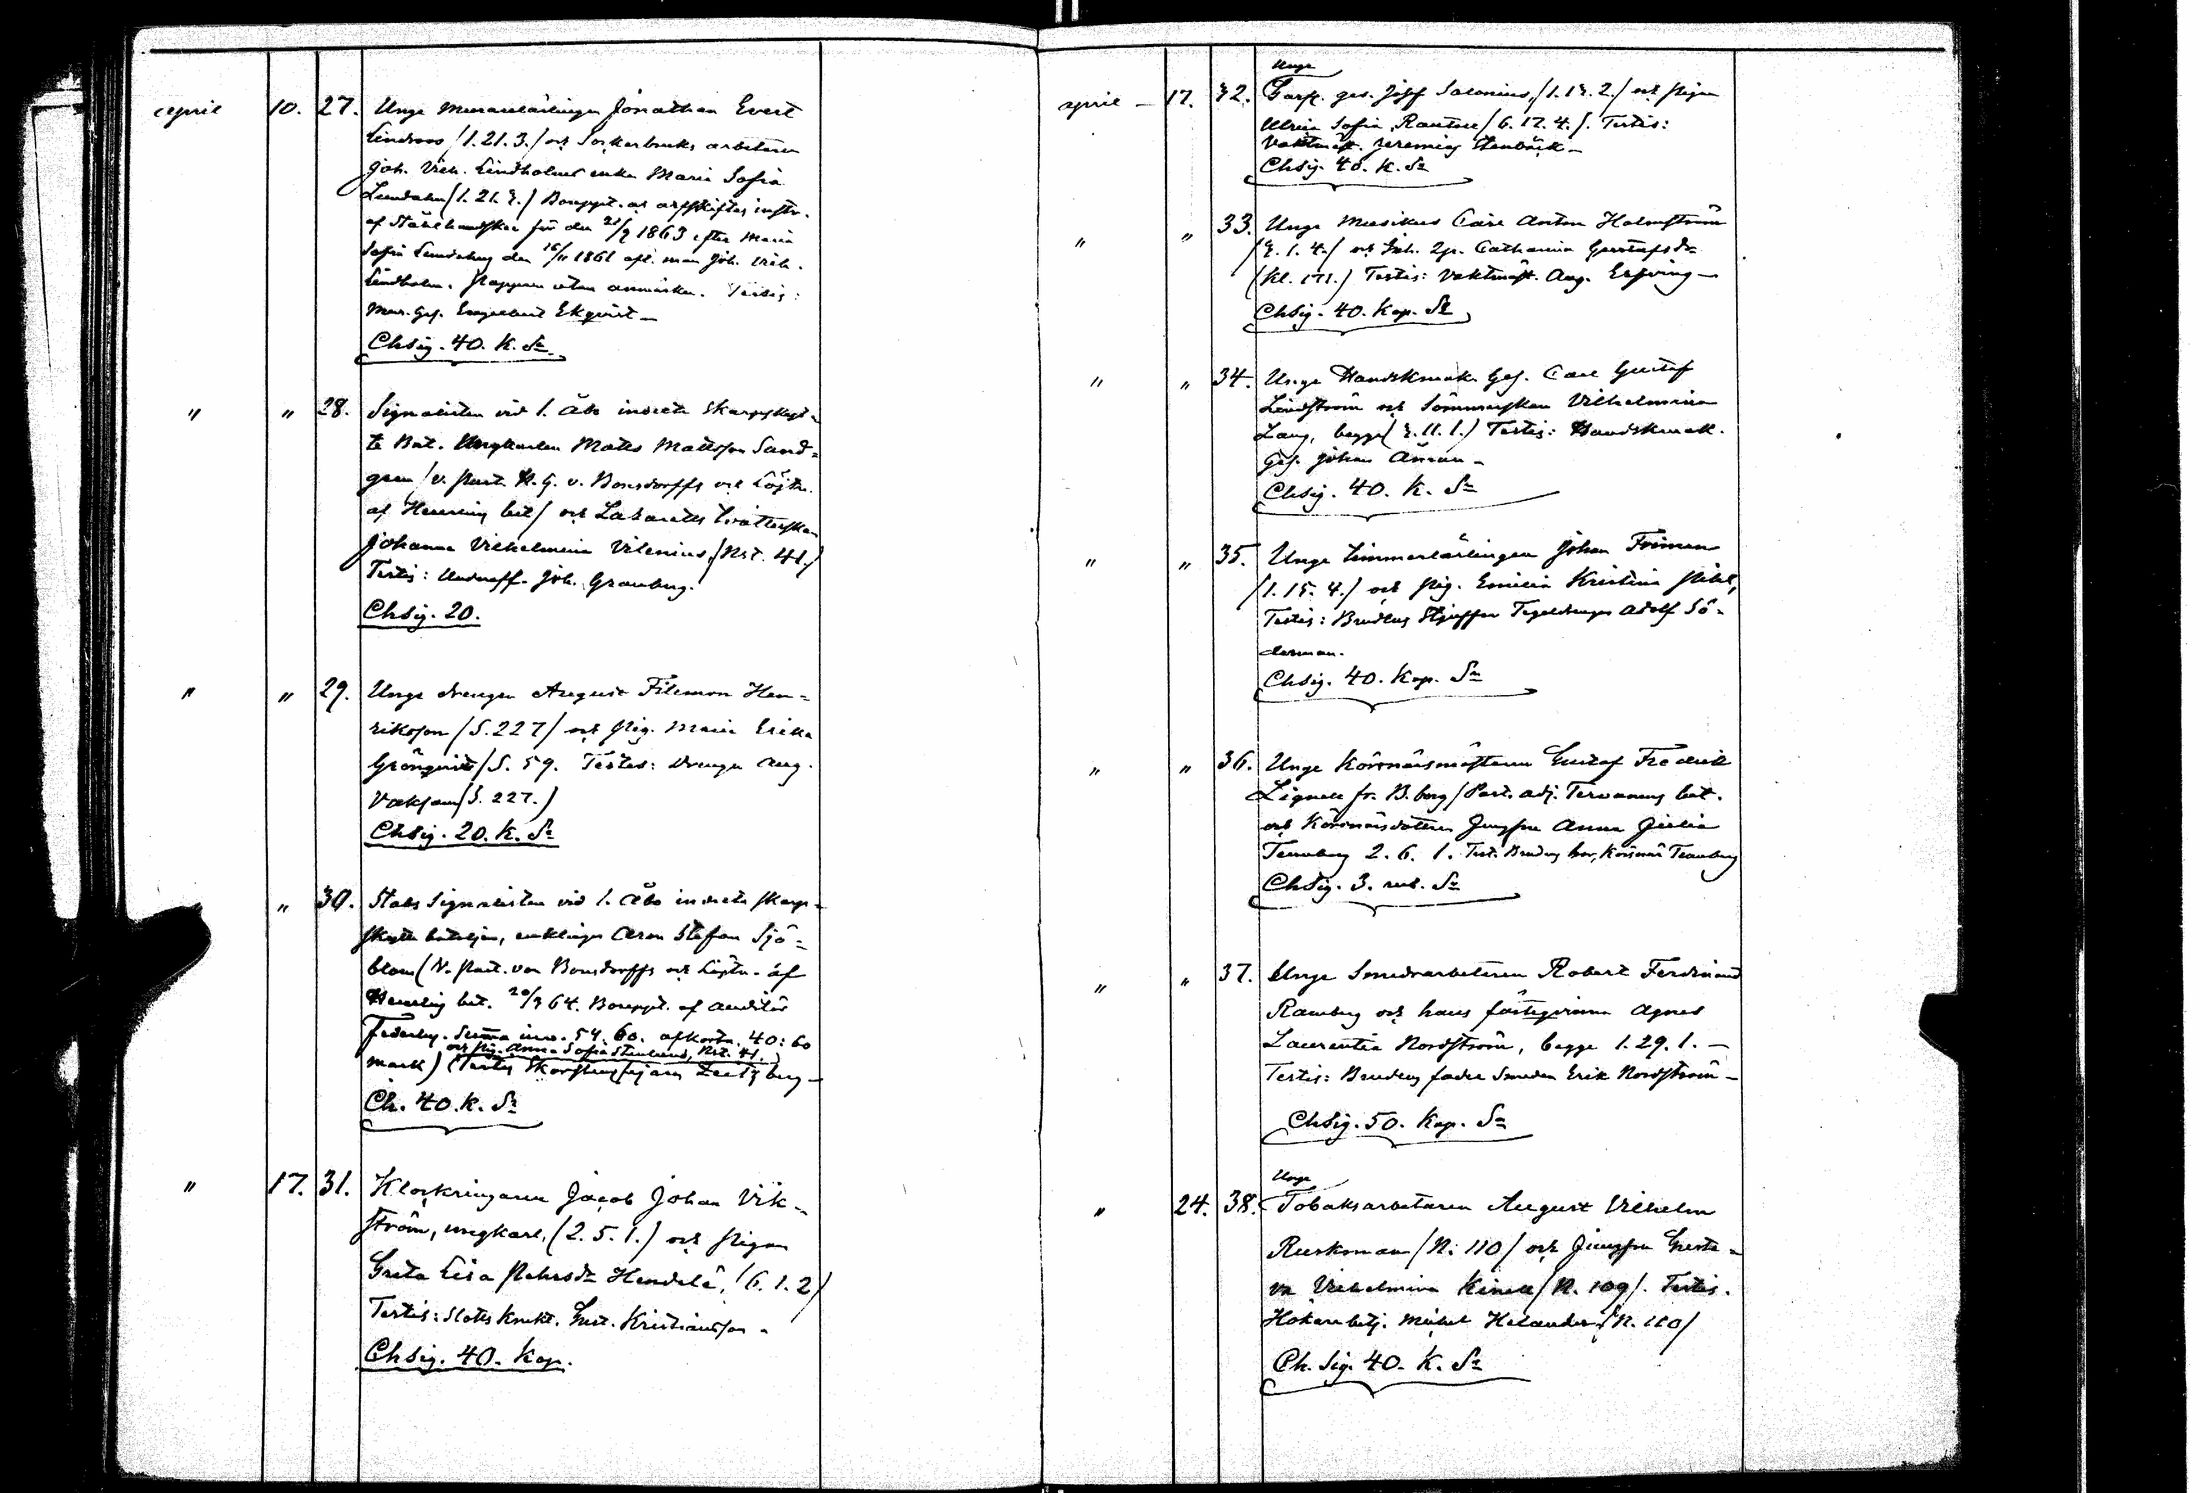 april 10. 27. Unge murarelärlingen Jonathan Evert
Lindroos /1. 21. 3./ och Sockerbruks arbetaren
Joh. Vilh. Lindholms enka Maria Sofia
Lundahn (1. 21. 3.) Bouppt. och arfskiftes instr.
af Stålhandske för den 1863 efter Maria
Sofia den 16/11 1861 afl. man Joh. Vilh.
Lindholm. Papperen utan anmärkn. Testis:
Mur. Ges. Engelbert Ekqvist -
Chsig. 40. K. Sr
" " 28. Signalisten vid 1. Åbo indelta Skarpskyt-
te Bat. Ungkarlen Matts Mattsson Sand-
gren /v. Past. K. G. v. Bonsdorffs och Löjtn.
af Heurlin bet/ och Lazaretts tvätterskan
Johanna Vilhelmina Vilenius, /Nrt. 41./
Testis: Underoff. Joh. Granberg.
Chsig. 20.
" " 29. Unge drengen August Filemon Hen-
riksson /S. 227/ och Pig. Maria Erika
Grönqvist /S. 59. Testes: Drengen Aug.
(S. 227.)
Chsig. 20. K. Sr
" 30. Stabs Signalisten vid 1. Åbo indelta Skarp-
skytte bataljon, enklingen Stefan Sjö-
blom (V. Past. von Bonsdorffs och Löjtn. af
Heurlin bet. 20/3 64. Bouppt. af Auditör
Federley. Summa inv. 54. 60. afkortn. 40: 60
och Pig. Anna Sofia Nrt. 41.
mark) (Testis
Ch. 40. K. Sr
" 17. 31. Klockringaren Jacob Johan Vik-
ström, ungkarl, (2. 5. 1.) och Pigan
Greta Lisa Hendelä, (6. 1. 2)
Testis: Slotts Knekt. Gust. Kristiansson -
Chsig. 40. Kop.
Unge
april - 17. 32. Garf. ges. Josef Salonius, /1. 13. 2./ och Pigan
Ulrica Sofia Rautell /6. 17. 4./. Testis:
Vaktmäst. Jeremias Stenbäck -
Chsig. 40. K. Sr
" " 33. Unge Musikus Carl Anton Holmström
/3. 1. 4./ och Catharina Gustafsdr
(Kl. 171.) Testis: Vaktmäst. Aug. Elfving -
Chsig. 40. Kop. Sr
" " 34. Unge Handskmak. Ges. Carl Gustaf
Lindström och Sömmerskan Vilhelmina
Lang, begge (3. 11. 1.) Testis: Handskmak.
Ges. Johan -
Chsig. 40. K. Sr
" " 35. Unge Timmerlärlingen Johan Friman
/1. 15. 4./ och Pig. Emilia Kristina
Testis: Brudens Adolf Sö-
derman.
Chsig. 40. Kop. Sr
" " 36. Unge Körsnärsmästaren Gustaf Fredrik
Lignell fr. B.borg /Past. adj. bet.
och Körsnärsdottern Jungfrun Anna Julia
Ternberg 2. 6. 1. Test. Brudens bror, Körsnär Ternberg
Chsig. 3. rub. Sr
" " 37. Unge Smedsarbetaren Robert Ferdinand
Ramberg och hans fästeqvinna Agnes
Laurentia Nordström, begge 1. 29. 1. -
Testis: Brudens fader Smeden Erik Nordström -
Chsig. 50. Kop. Sr
Unge
" 24. 38. Tobaksarbetaren August Vilhelm
Ruskman /N: 110/ och Jungfrun Gusta-
va Vilhelmina Kinell /N. 109/. Testis.
Hökarebetj. Mikel Helander /N. 110/
Ch. sig. 40. K. Sr